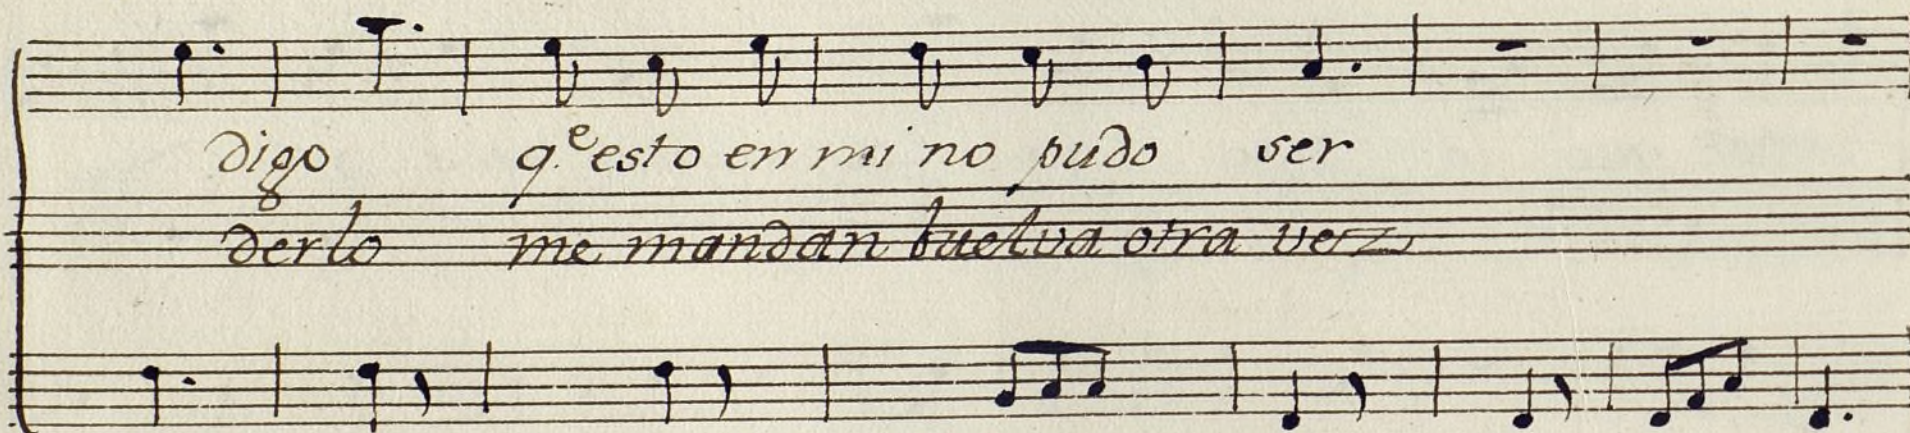 digo q.e esto en mi no pudo ser
derlo me mandan buelva otra vez